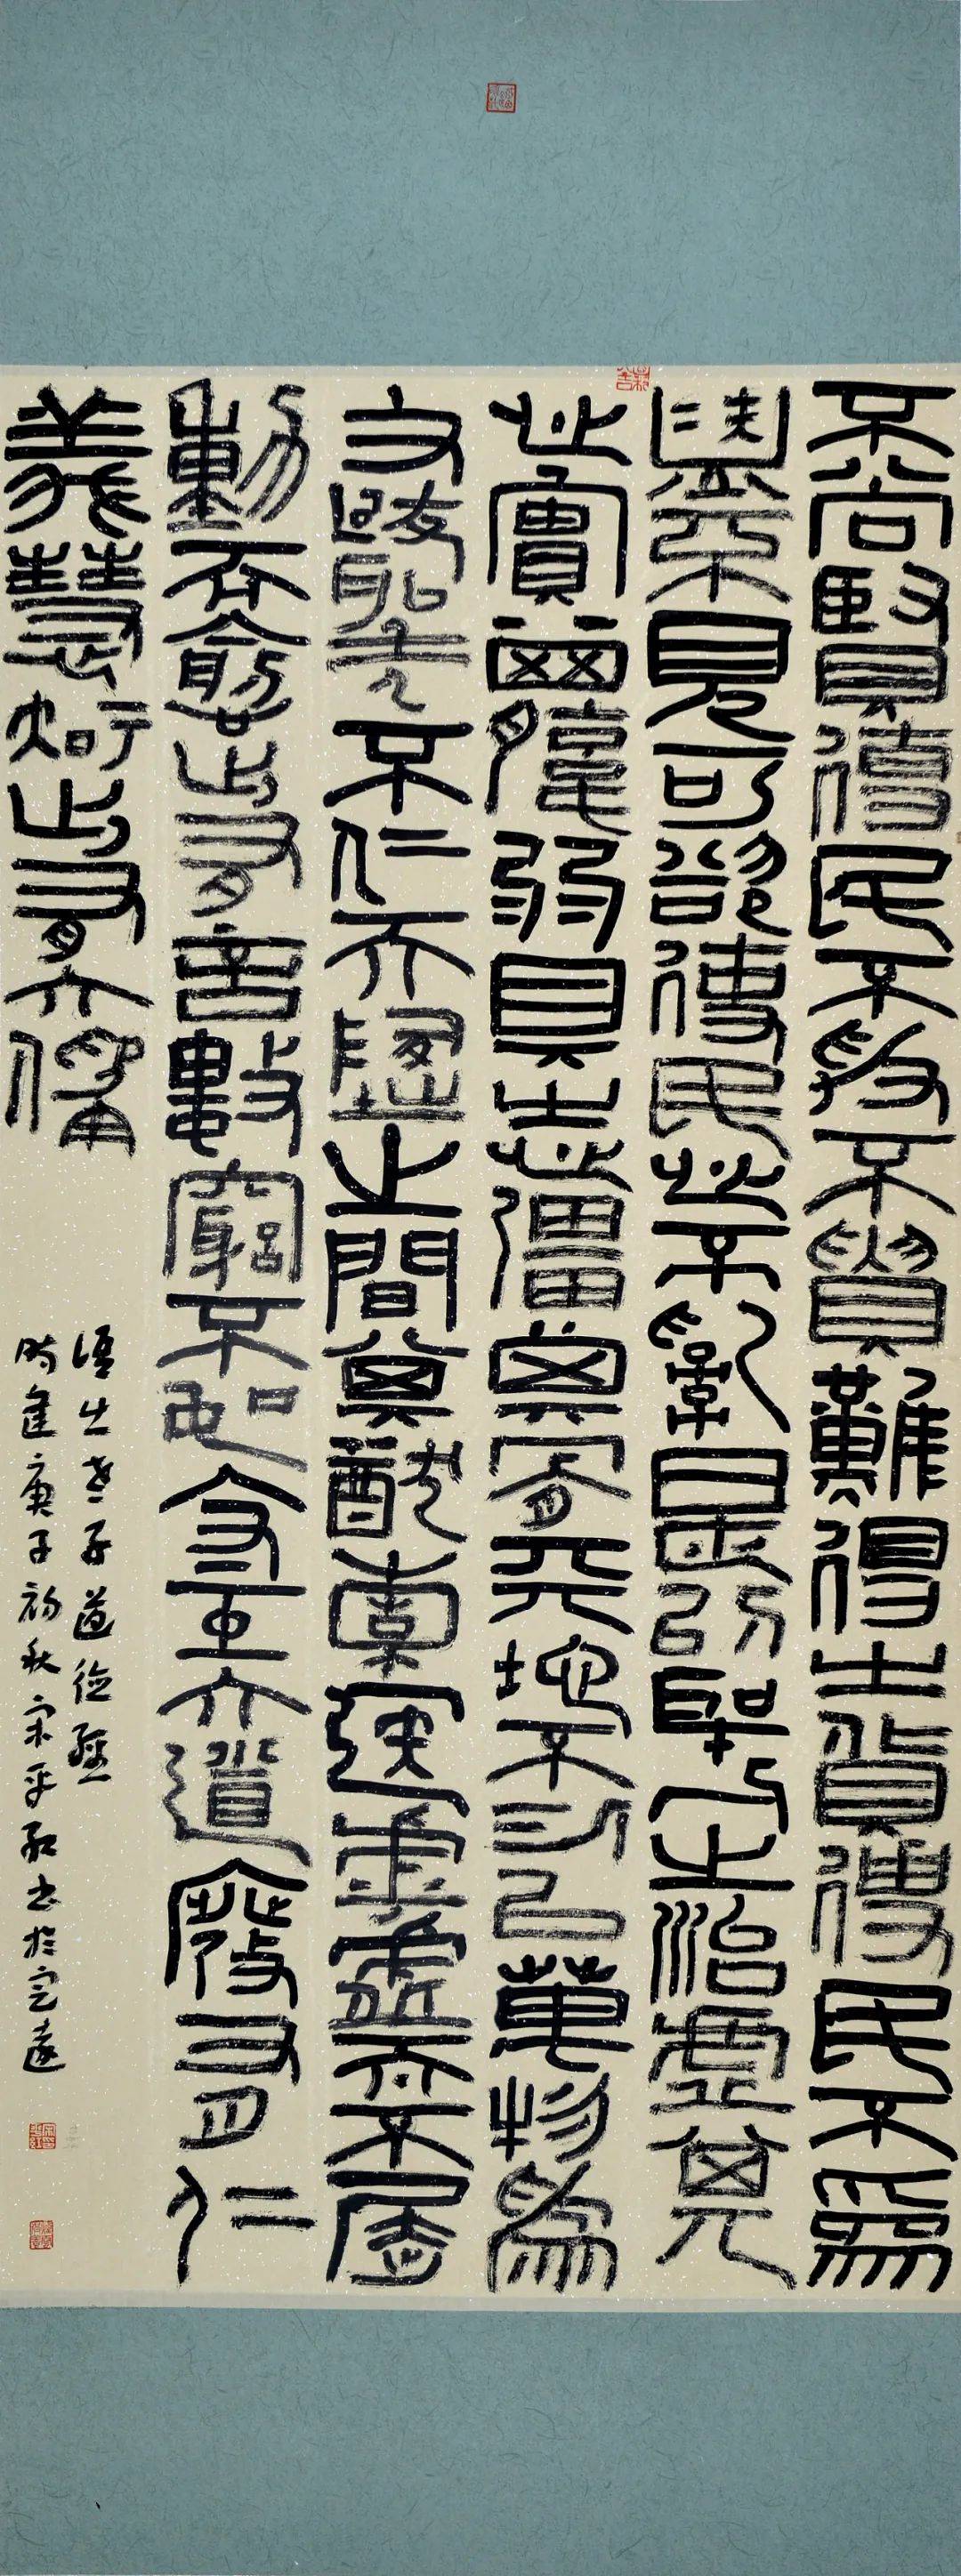 不尚賢使民不爭不貴難得之貨使民不為
盜不見可欲使民心不亂是以聖人之治虛其
心實其腹弱其志彊其骨天地不仁以萬物為
芻狗聖人不仁天地之間其猶橐籥與虛而不屈
動而愈出多言數窮不如守中大道廢有仁
義慧智出有大偽
語出老子道德經
時逢庚子初秋宋平紅書於定遠